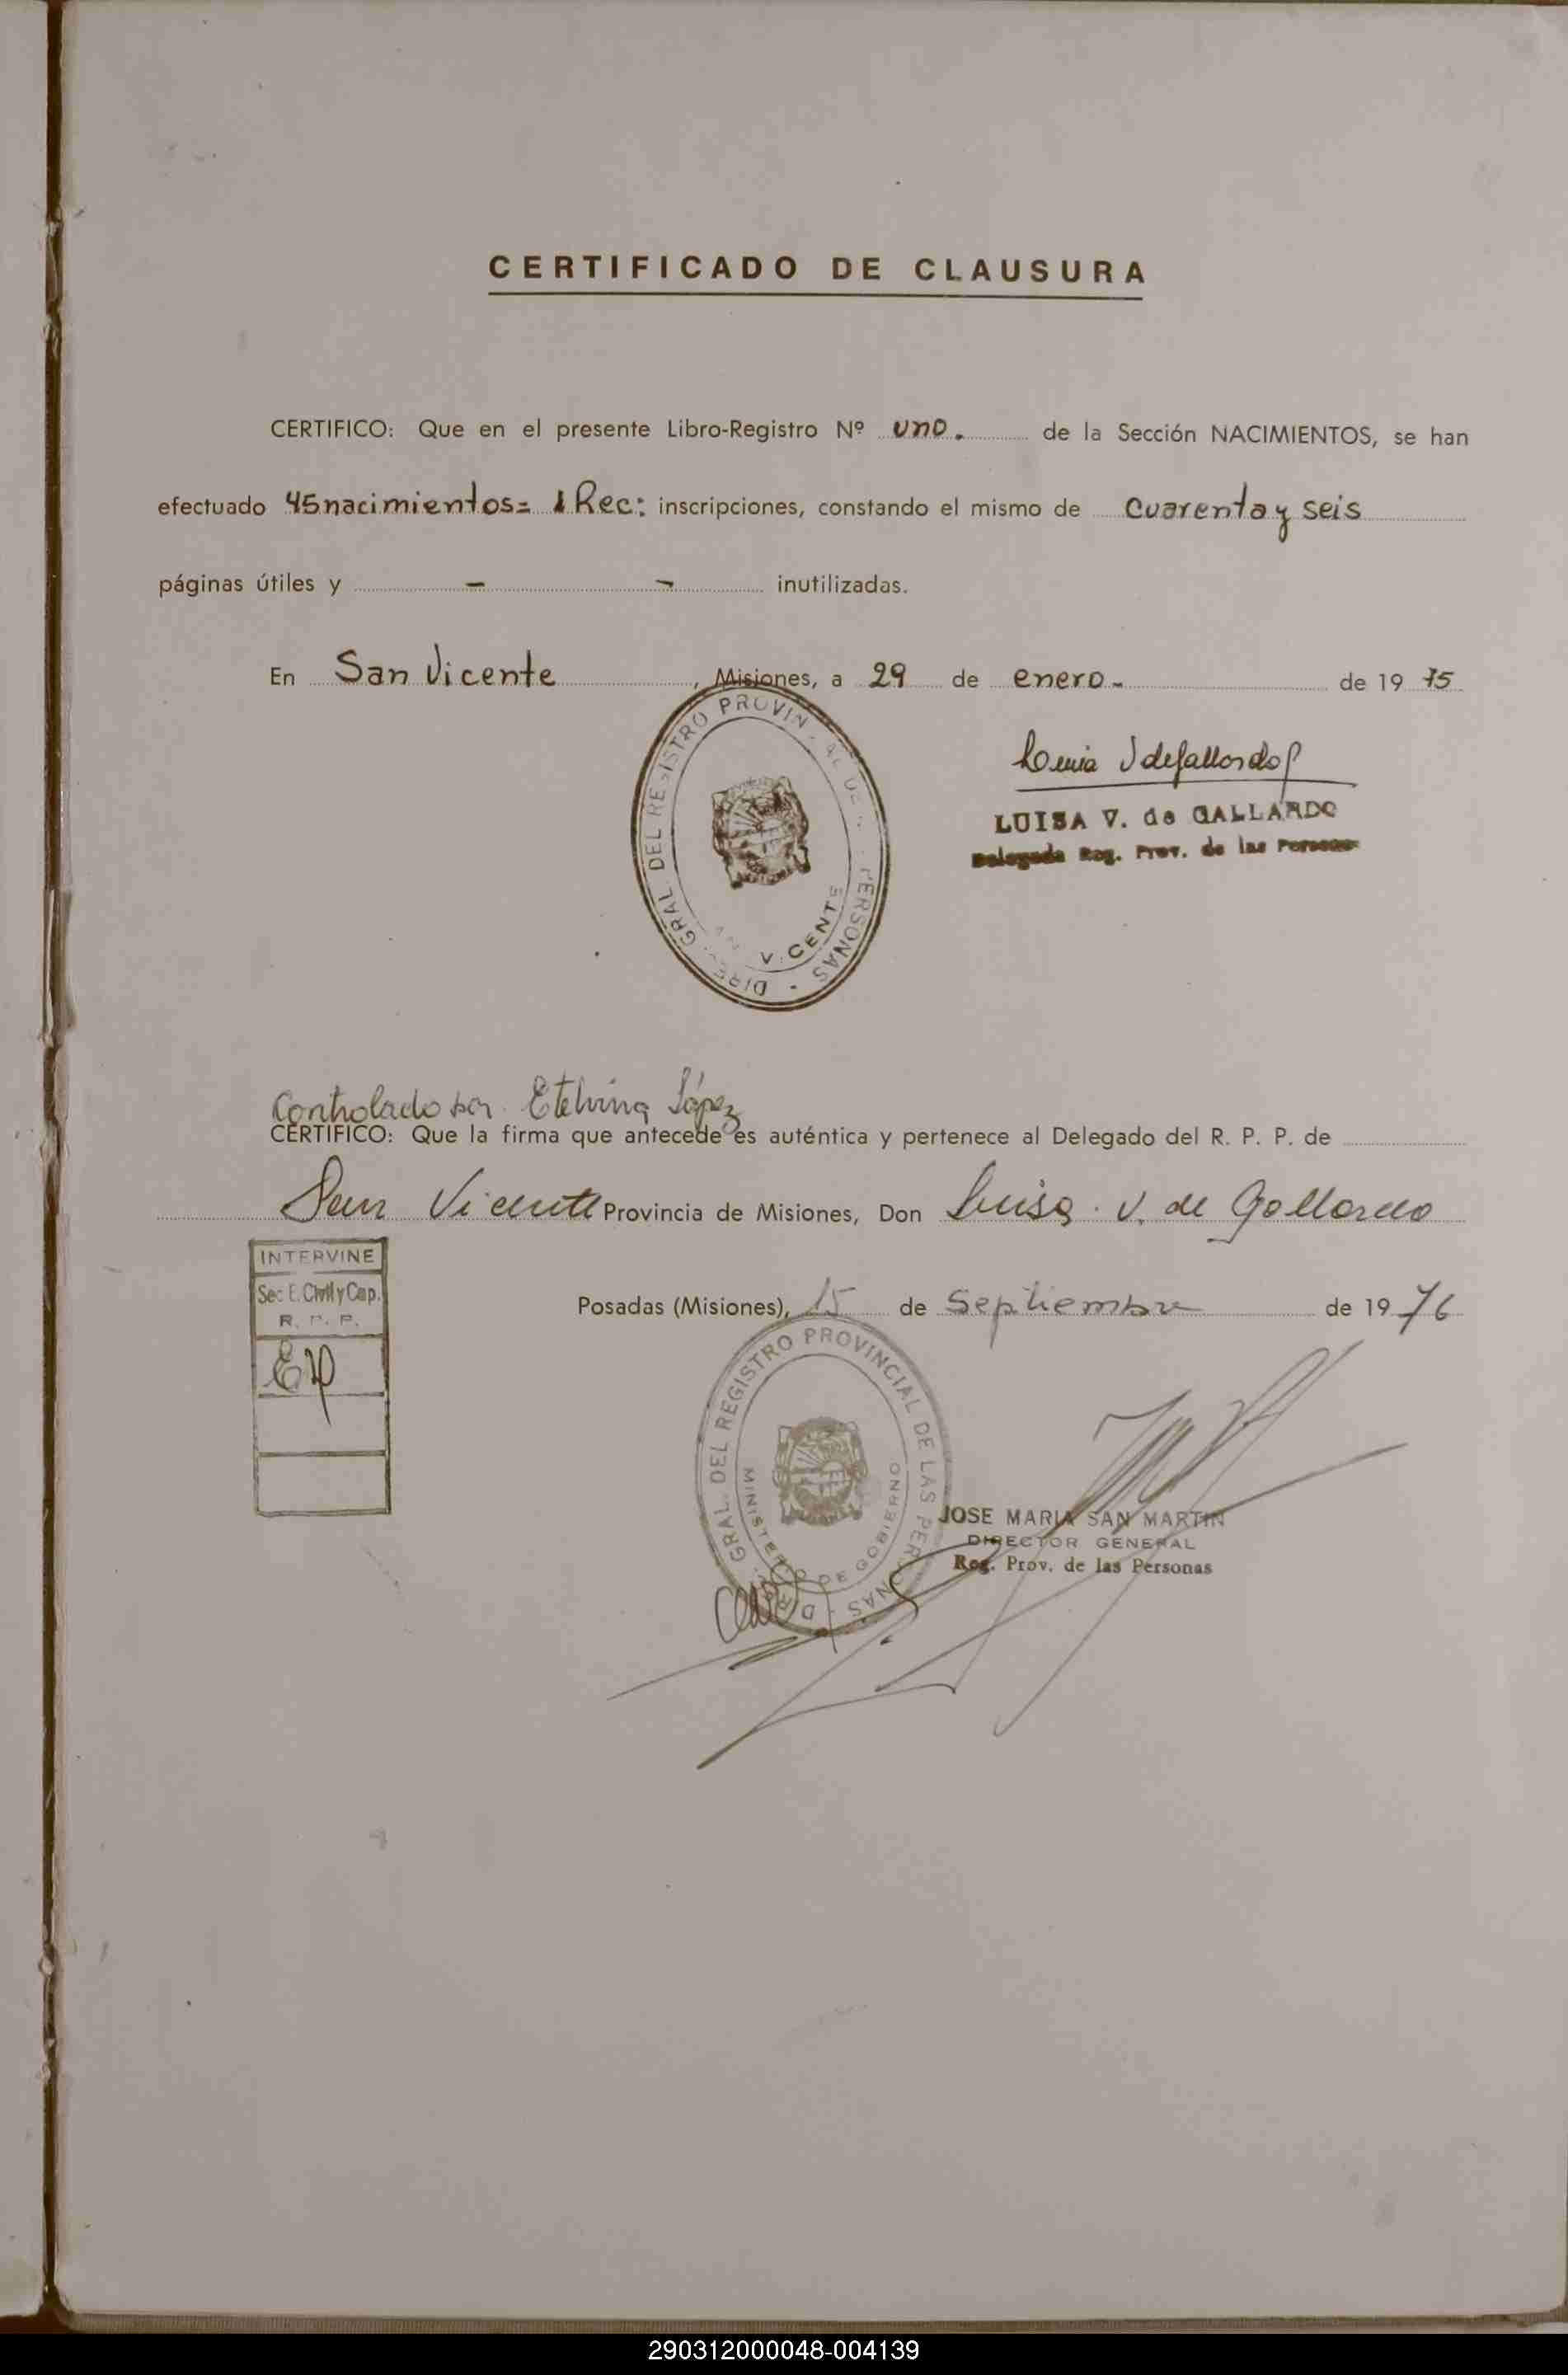 CERTIFICADO DE CLAUSURA
CERTIFICO: Que en el presente Libro-Registro Nº uno. de la Sección NACIMIENTOS, se han
efectuado 45 nacimientos= 1 Rec: inscripciones, constando el mismo de cuarenta y seis
páginas útiles y - - inutilizadas.
En San Vicente, Misiones, a 29 de enero- de 19 75
DIREC. GRAL. DEL REGISTRO PROVINCIAL DE LAS PERSONAS
VICENTE
LUISA V. de GALLARDO
Delegada Reg. Prov. de las Personas
Controlado por Etelvina López
CERTIFICO: Que la firma que antecede es auténtica y pertenece al Delegado del R. P. P. de
San Vicente Provincia de Misiones, Don Luisa . V. de Gallardo
INTERVINE
Sec E. Civil y Cap.
R. P. P.
Posadas (Misiones), 15 de Septiembre de 19 76
DIREC. GRAL. DEL REGISTRO PROVINCIAL DE LAS PERSONAS
MINISTERIO DE GOBIERNO
JOSE MARIA SAN MARTIN
DIRECTOR GENERAL
Reg. Prov. de las Personas
290312000048-004139